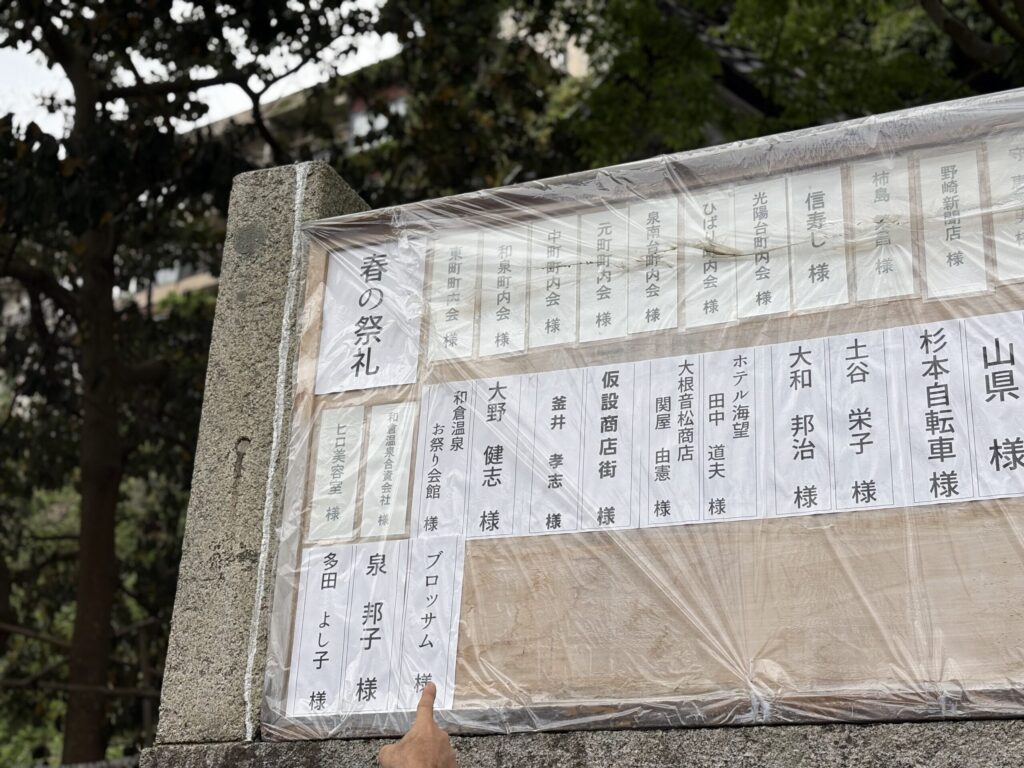 野崎新聞店 様
柿島 様
信寿し 様
光陽台町内会 様
ひばり 町内会 様
泉南台町内会 様
元町町内会 様
中町町内会 様
和泉町内会 様
東町町内会 様
春の祭礼
山県 様
杉本自転車 様
土谷 栄子 様
大和 邦治 様
ホテル海望
田中 道夫 様
大根音松商店
関屋 由憲 様
仮設商店街 様
釜井 孝志 様
大野 健志 様
和倉温泉
お祭り会館 様
和倉温泉合資会社 様
ヒロ美容室 様
ブロッサム 様
泉 邦子 様
多田 よし子 様